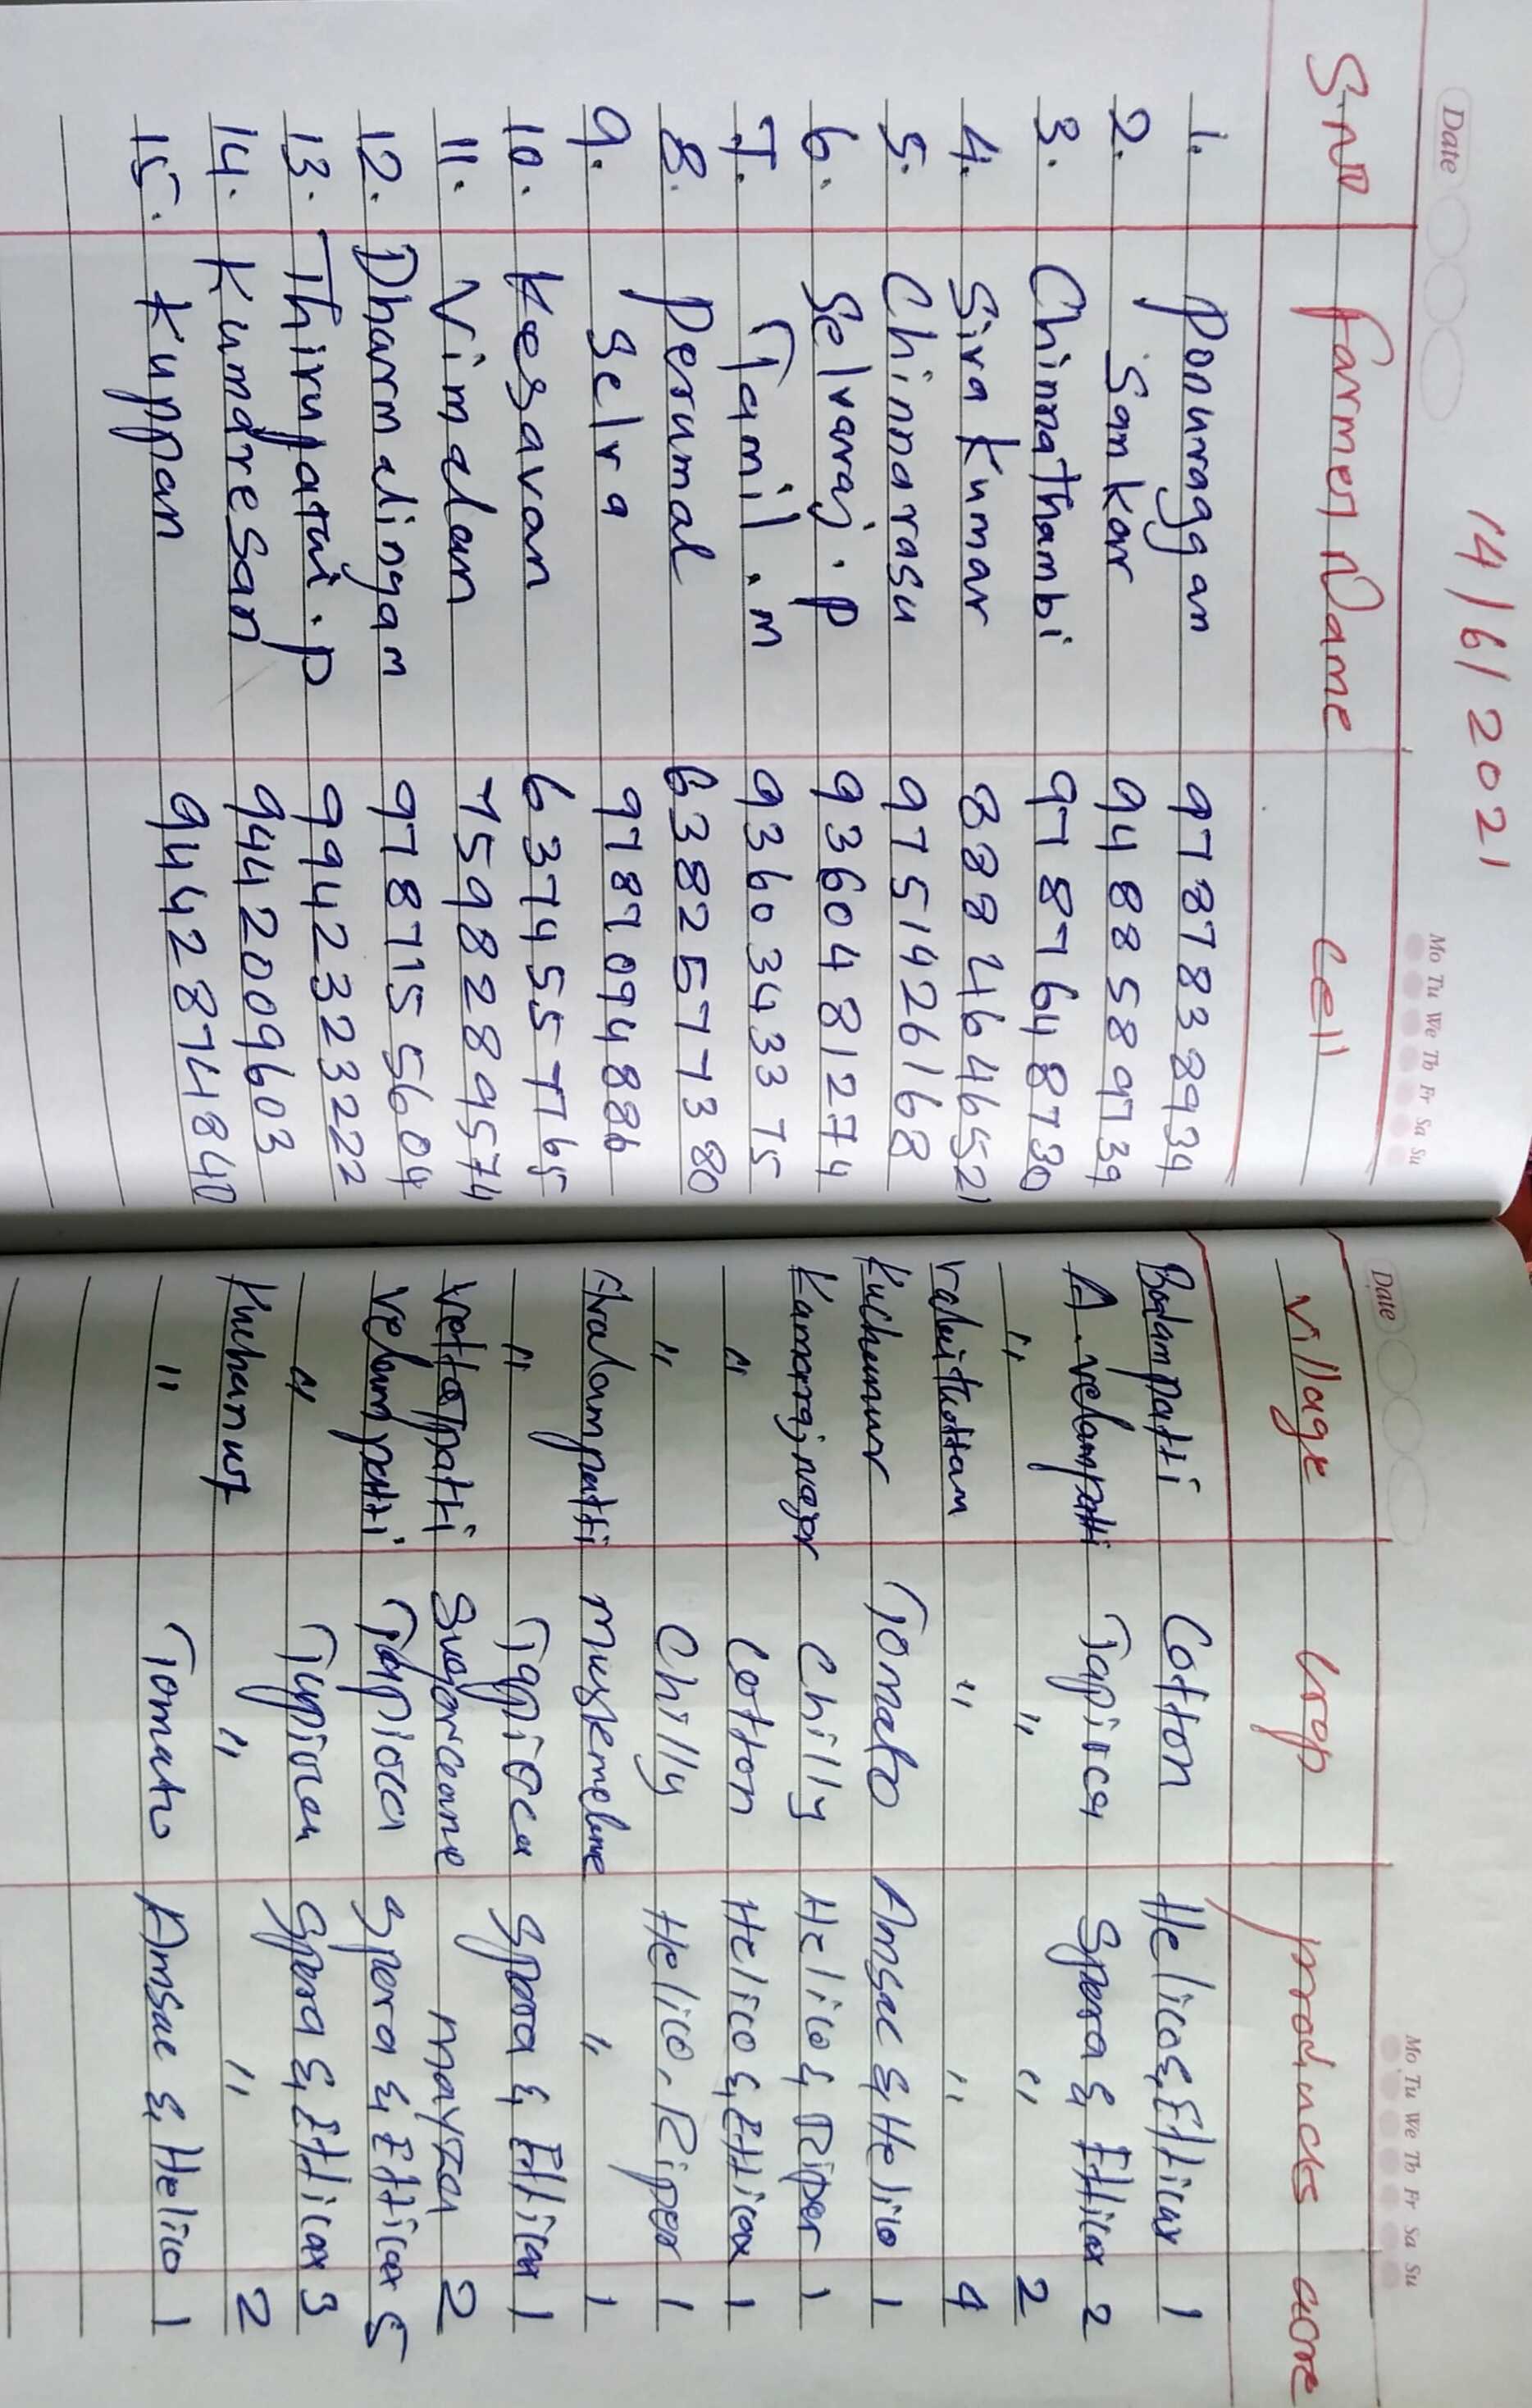 Date
14/6/2021
Mo Tu We Th Fr Sa Su
Date
Mo Tu We Th Fr Sa Su
S.no Farmer Name Cell Village Crop products acre
1. Ponuraggan 9787838939 Bodampatti Cotton Helico & Ethicax 1
2. Sankar 9488858939 A. velampatti Tapioca Spera & Ethicax 2
3. Chinnathambi 9787648730 " " " 2
4. Siva Kumar 8888246521 " " 4
5. Chinnarasu 9751426168 Kuchanur Tomato Amsac & Helico 1
6. Selvaraj. P 9360481274 Kamaraj nagar Chilly Helico & Riper 1
7. Tamil. m 9360343375 " Cotton Helico & Ethicax 1
8. Perumal 6382577380 " Chilly Helico, Riper 1
9. Selva 9787094886 Avalampatti muskmelone " 1
10. Kesavan 6374557765 " Tapioca Spera & Ethicax 1
11. Vimalan 7598289574 Vettopatti Sugarceane mayza 2
12. Dharmalingam 9787155604 velampatti Tapioca Spera & Ethicax 5
13. Thirupathi. P 9942323222 " Tapioca Spera & Ethicax 3
14. Kumaresan 9442009603 Kuchanur " " 2
15. Kuppan 9442874840 " Tomato Amsac & Helico 1